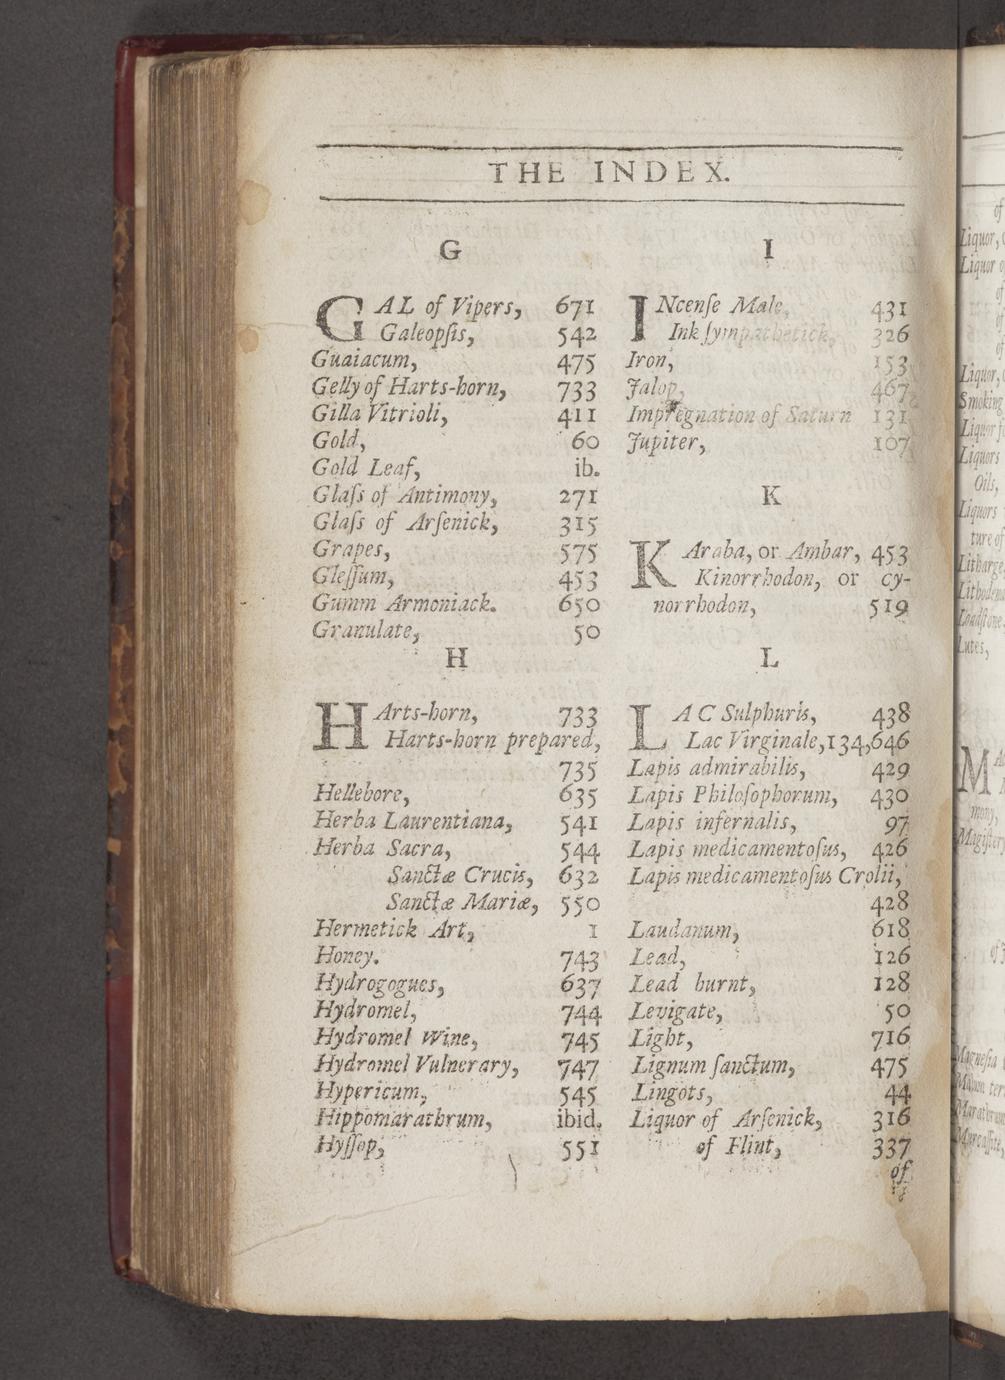 THE INDEX.
G
GAL of Vipers, 671
Galeopſis, 542
Guaiacum, 475
Gelly of Harts-horn, 733
Gilla Vitrioli, 411
Gold, 60
Gold Leaf, ib.
Glaſs of Antimony, 271
Glaſs of Arſenick, 315
Grapes, 575
Gleſſum, 453
Gumm Armoniack. 650
Granulate, 50
H
HArts-horn, 733
Harts-horn prepared,
735
Hellebore, 635
Herba Laurentiana, 541
Herba Sacra, 544
Sanctæ Crucis, 632
Sanctæ Mariæ, 550
Hermetick Art, 1
Honey. 743
Hydrogogues, 637
Hydromel, 744
Hydromel Wine, 745
Hydromel Vulnerary, 747
Hypericum, 545
Hippomarathrum, ibid.
Hyſſop, 551
I
INcenſe Male, 431
Ink ſympathetick, 326
Iron, 153
Jalop, 467
Impregnation of Saturn 131
Jupiter, 107
K
KAraba, or Ambar, 453
Kinorrhodon, or cy-
norrhodon, 519
L
LAC Sulphuris, 438
Lac Virginale, 134, 646
Lapis admirabilis, 429
Lapis Philoſophorum, 430
Lapis infernalis, 97
Lapis medicamentoſus, 426
Lapis medicamentoſus Crolii,
428
Laudanum, 618
Lead, 126
Lead burnt, 128
Levigate, 50
Light, 716
Lignum ſanctum, 475
Lingots, 44
Liquor of Arſenick, 316
of Flint, 337
of
of
Liquor,
Liquor
of
of
of
Liquor,
Smoking
Liquor
Liquors
Oils,
Liquors
ture of
Litharge,
Loadſtone
Lutes,
M
mony,
Magneſia